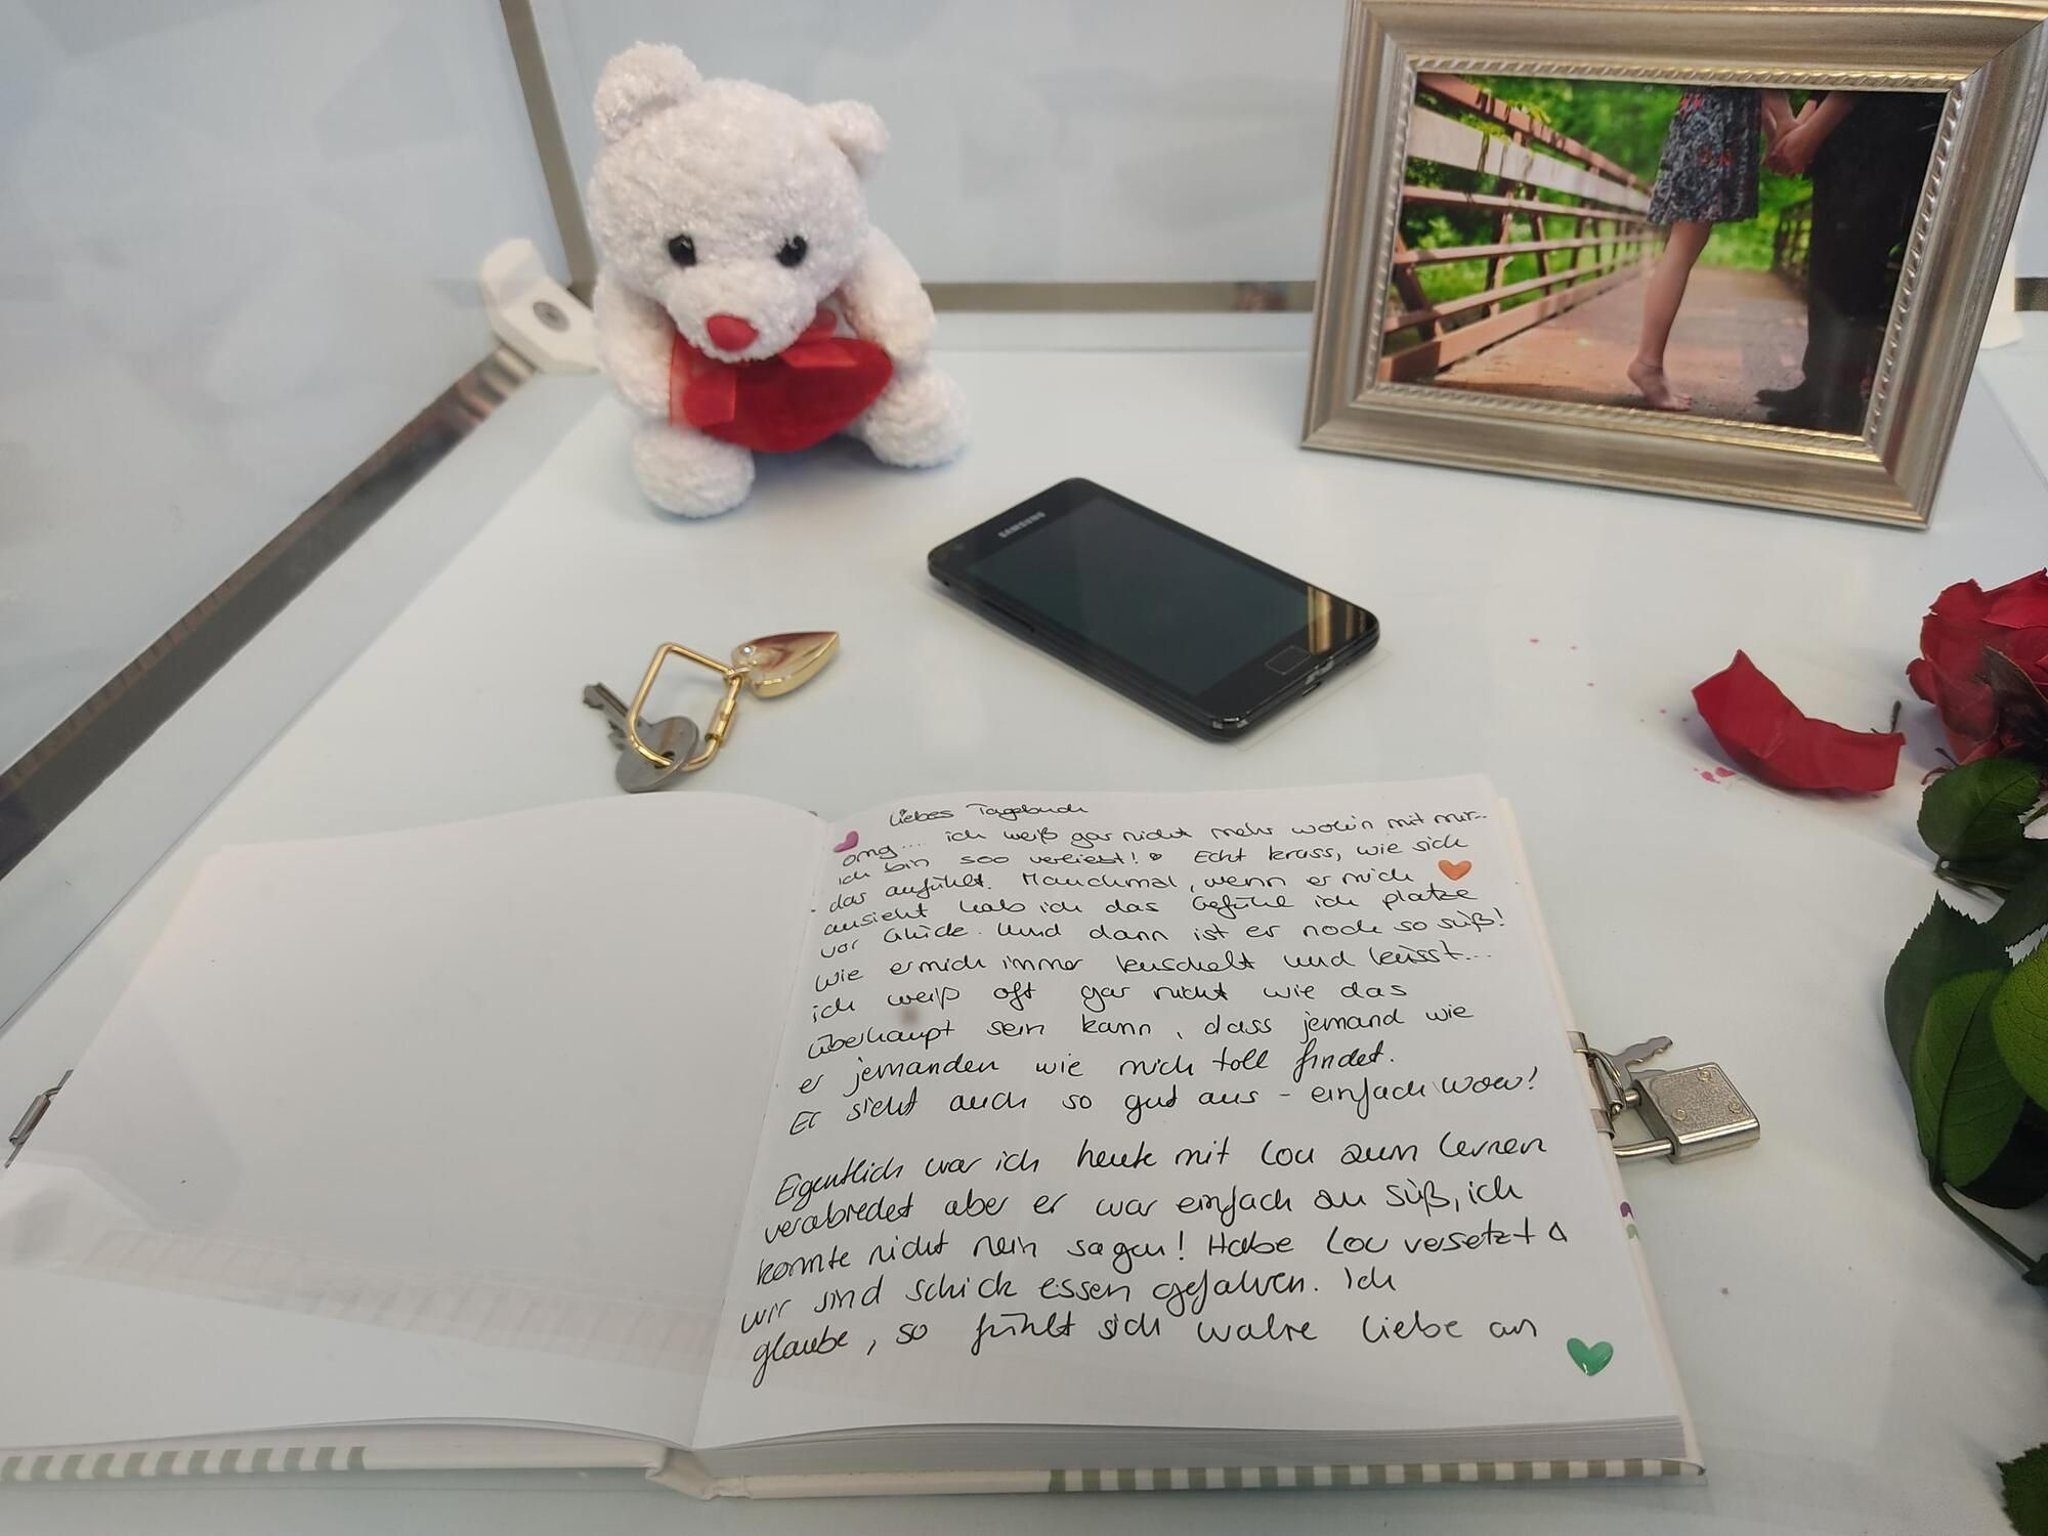 SAMSUNG
Liebes Tagebuch
omg.... ich weiß gar nicht mehr wohin mit mir..
ich bin soo verliebt! Echt krass, wie sich
das anfühlt. Manchmal, wenn er mich
ansieht hab ich das Gefühl ich platze
vor Glück. Und dann ist er noch so süß!
Wie er mich immer kuschelt und küsst...
ich weiß oft gar nicht wie das
überhaupt sein kann, dass jemand wie
er jemanden wie mich toll findet.
Er sieht auch so gut aus - einfach wow!
Eigentlich war ich heute mit Lou zum Lernen
verabredet aber er war einfach zu süß, ich
konnte nicht nein sagen! Habe Lou versetzt &
wir sind schick essen gefahren. Ich
glaube, so fühlt sich wahre Liebe an